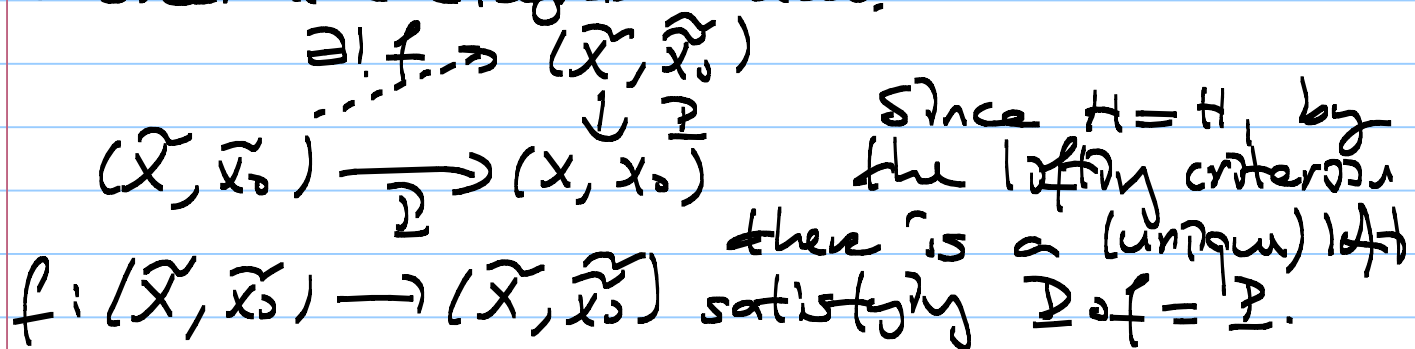 ∃! f (X̃, x̃̃₀)
↓ p since H = H, by
(X̃, x̃₀) → (X, x₀) the lifting criterion
p there is a (unique) lift
f : (X̃, x̃₀) → (X̃, x̃̃₀) satisfying p∘f = p.